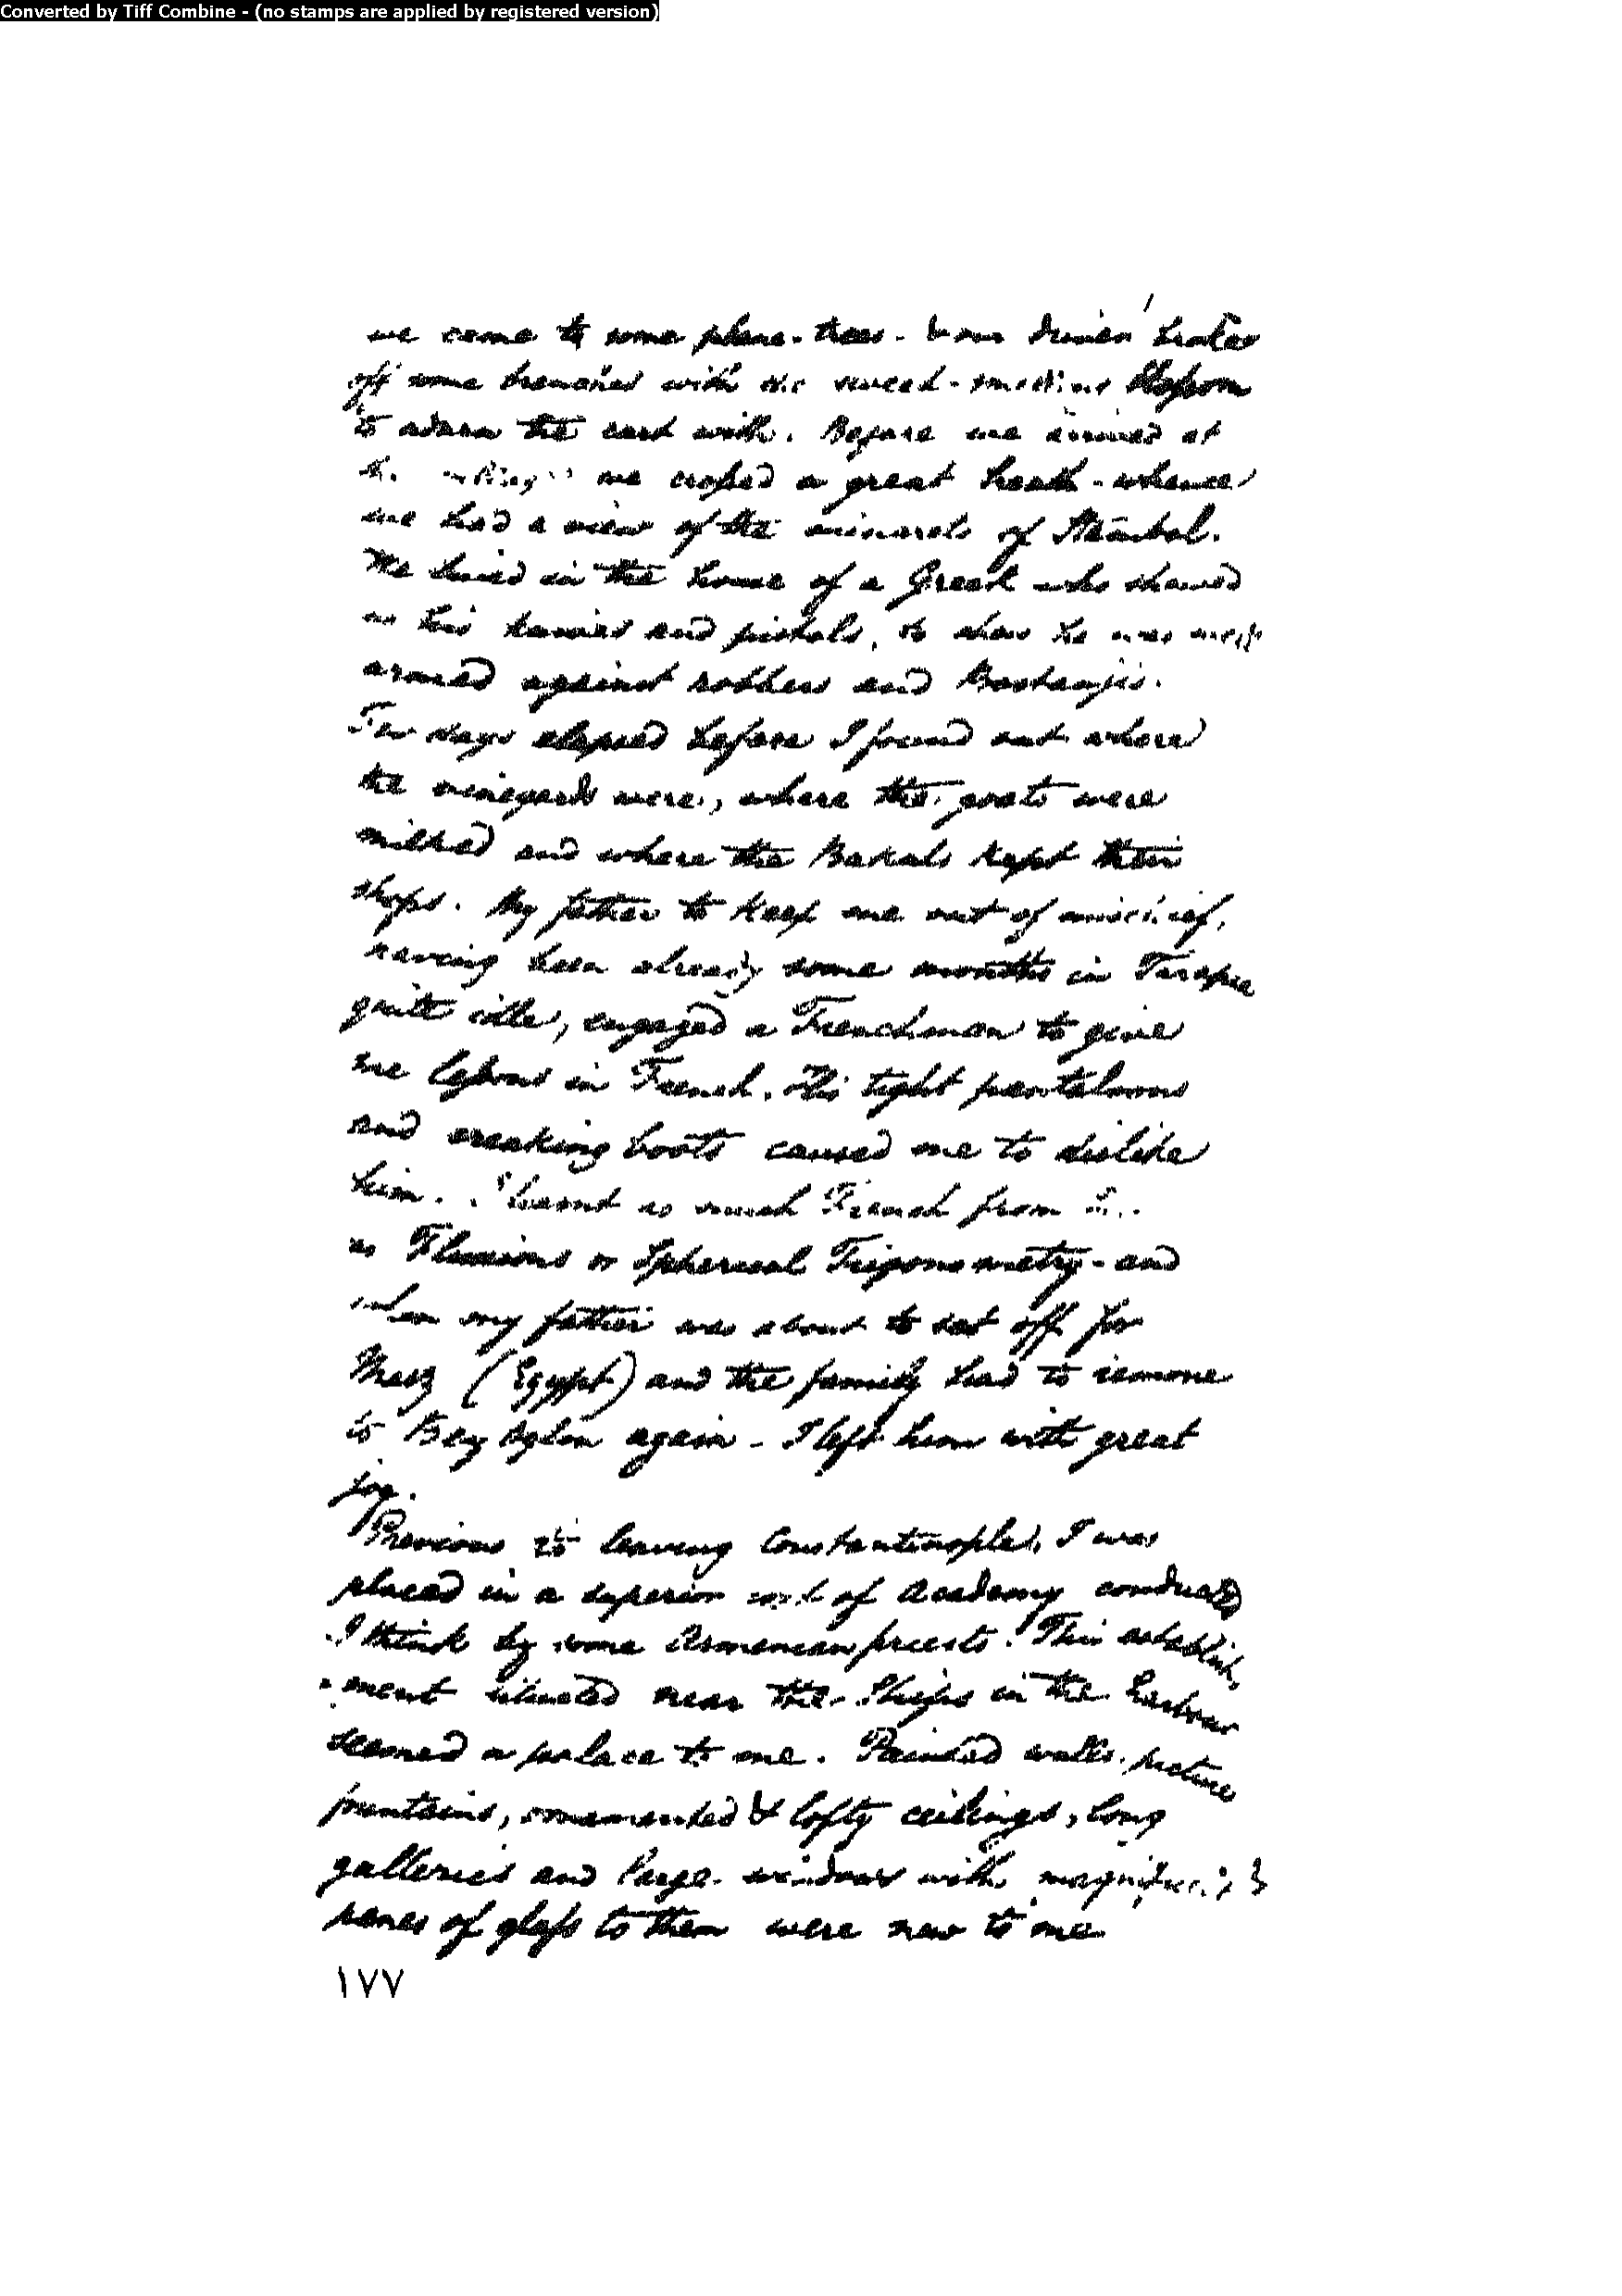 Converted by Tiff Combine - (no stamps are applied by registered version)
we came to some plane-trees - & our driver broke
off some branches with the sweet-smelling blossom
to adorn the cart with. Before we arrived at
we crossed a great heath - whence
we had a view of the minarets of Stambol.
We lived in the house of a Greek who showed
us his knives and pistols, to show he was well
armed against robbers and Bostanjis.
Few days elapsed before I found out where
the vineyards were, where the goats were
milked and where the Bakals kept their
shops. My father to keep me out of mischief,
having been already some months in Tarapia
quite idle, engaged a Frenchman to give
me lessons in French. His tight pantaloons
and creaking boots caused me to dislike
him. I learnt as much French from
as Fluxions or Spherical Trigonometry - and
when my father was about to set off for
(Egypt) and the family had to remove
to Bey Oglou again - I left him with great
joy.
Previous to leaving Constantinople, I was
placed in a superior sort of Academy conducted
I think by some Armenian priests. This establish
ment situated near the Ships in the harbour
seemed a palace to me. Painted walls, pictures
fountains, ornamented & lofty ceilings, long
galleries and large windows with magnificent
panes of glass to them were new to me
١٧٧